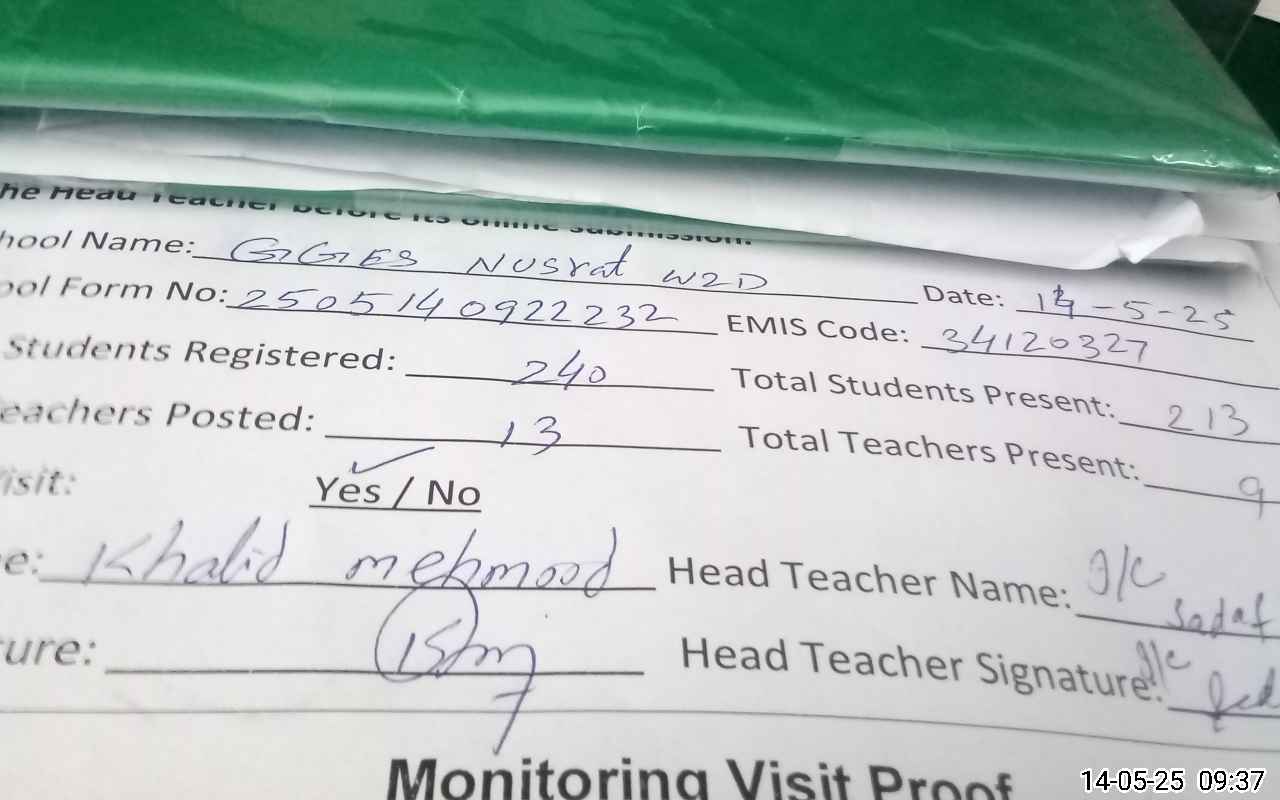 he Head Teacher before its online submission.
hool Name: GGES Nusrat W2D
Date: 14-5-25
ool Form No: 2505140922232
EMIS Code: 34120327
Students Registered: 240
Total Students Present: 213
eachers Posted: 13
Total Teachers Present: 9
isit: Yes / No
e: Khalid mehmood
Head Teacher Name: I/C Sadaf
ure:
Head Teacher Signature: I/C
Monitoring Visit Proof
14-05-25 09:37